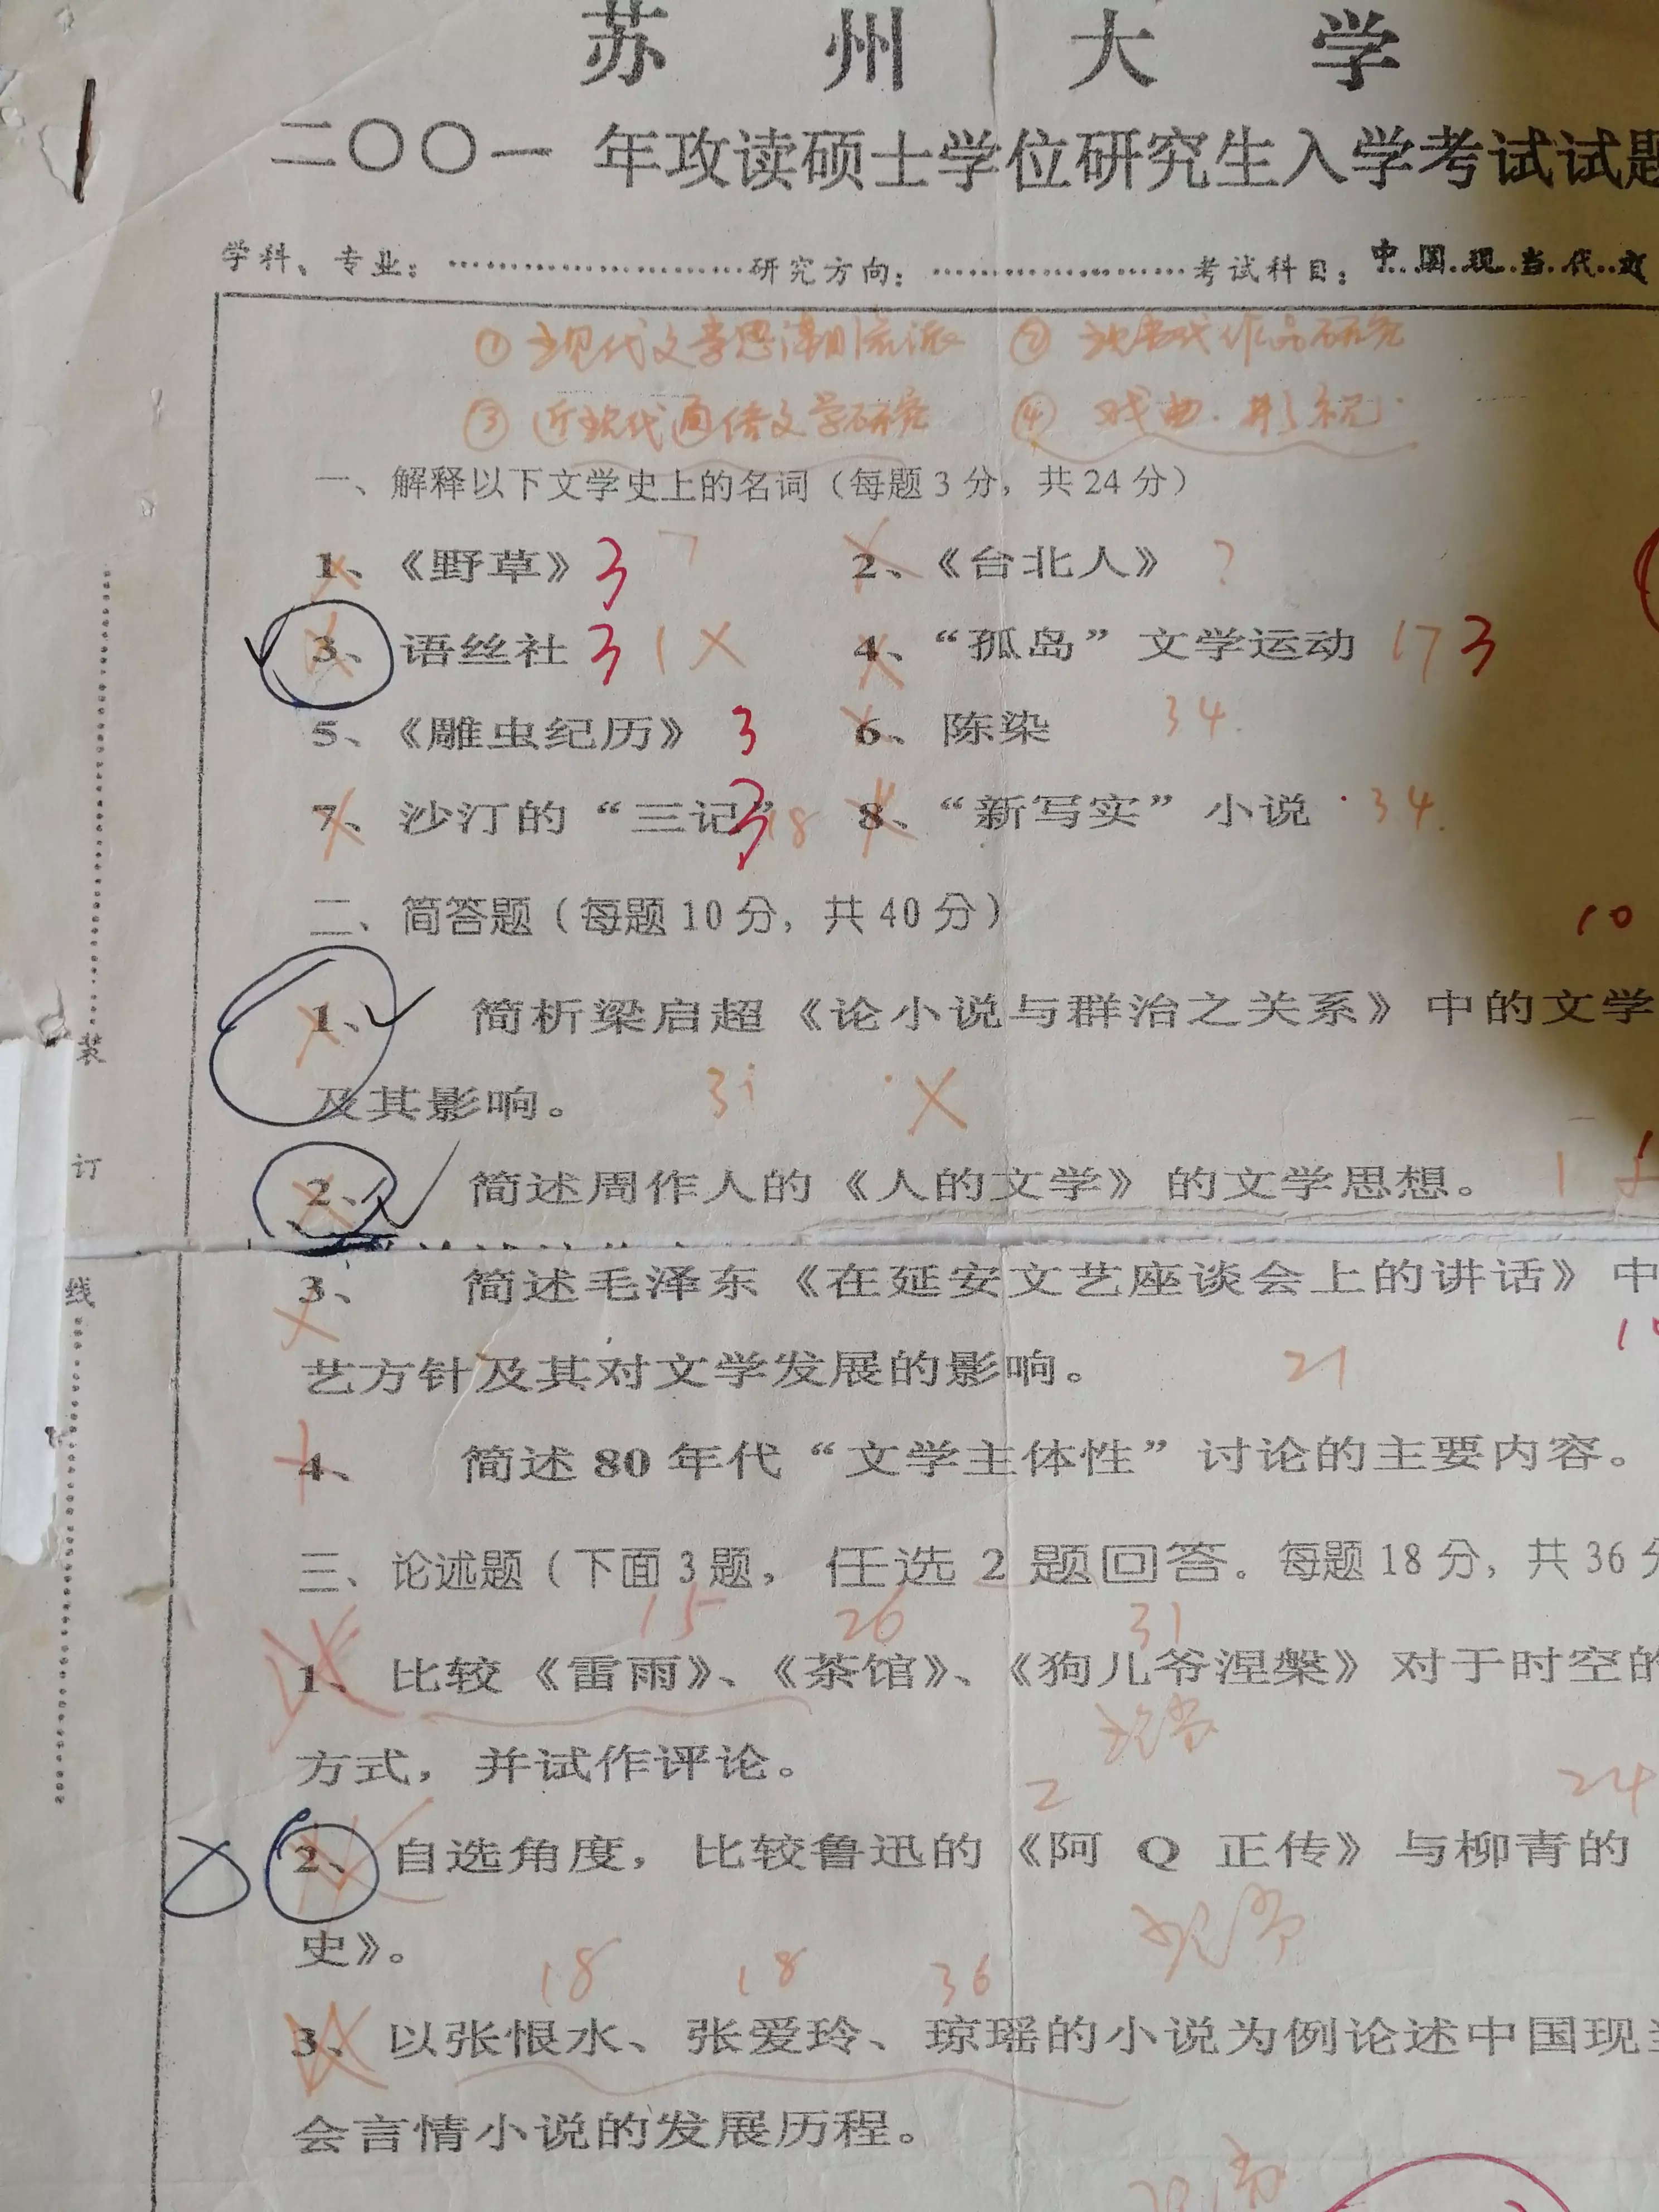 苏州大学
二〇〇一年攻读硕士学位研究生入学考试试题
学科、专业：研究方向：考试科目：中国现当代文
① 现代文学思潮流派 ② 现当代作品研究
③ 近现代通俗文学研究 ④ 戏曲.影视.
一、解释以下文学史上的名词（每题3分，共24分）
1、《野草》 3 7 2、《台北人》 ?
3、语丝社 3 1 × 4、“孤岛”文学运动 17 3
5、《雕虫纪历》 3 6、陈染 34.
7、沙汀的“三记” 3 18 8、“新写实”小说 34.
二、简答题（每题10分，共40分）
10
1、简析梁启超《论小说与群治之关系》中的文学
及其影响。 ×
2、简述周作人的《人的文学》的文学思想。 1
3、简述毛泽东《在延安文艺座谈会上的讲话》中
艺方针及其对文学发展的影响。 21
4、简述80年代“文学主体性”讨论的主要内容。
三、论述题（下面3题，任选2题回答。每题18分，共36分
15 26 31
1、比较《雷雨》、《茶馆》、《狗儿爷涅槃》对于时空的
方式，并试作评论。
2 24
2、自选角度，比较鲁迅的《阿Q正传》与柳青的
史》。
18 18 36
3、以张恨水、张爱玲、琼瑶的小说为例论述中国现当
会言情小说的发展历程。
装
订
线